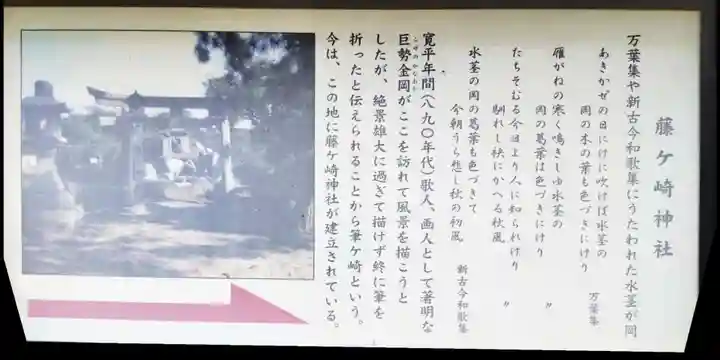 藤ケ崎神社
万葉集や新古今和歌集にうたわれた水茎が岡
あきかぜの日にけに吹けば水茎の
岡の木の葉も色づきにけり
万葉集
雁がねの寒く鳴きしゆ水茎の
岡の葛葉は色づきにけり
〃
たちそむる今日より人に知られけり
馴れし袂にかへる秋風
〃
水茎の岡の葛葉も色づきて
今朝うら悲し秋の初風
新古今和歌集
寛平年間(八九〇年代)歌人、画人として著明な
巨勢金岡がここを訪れて風景を描こうと
したが、絶景雄大に過ぎて描けず終に筆を
折ったと伝えられることから筆ケ崎という。
今は、この地に藤ケ崎神社が建立されている。